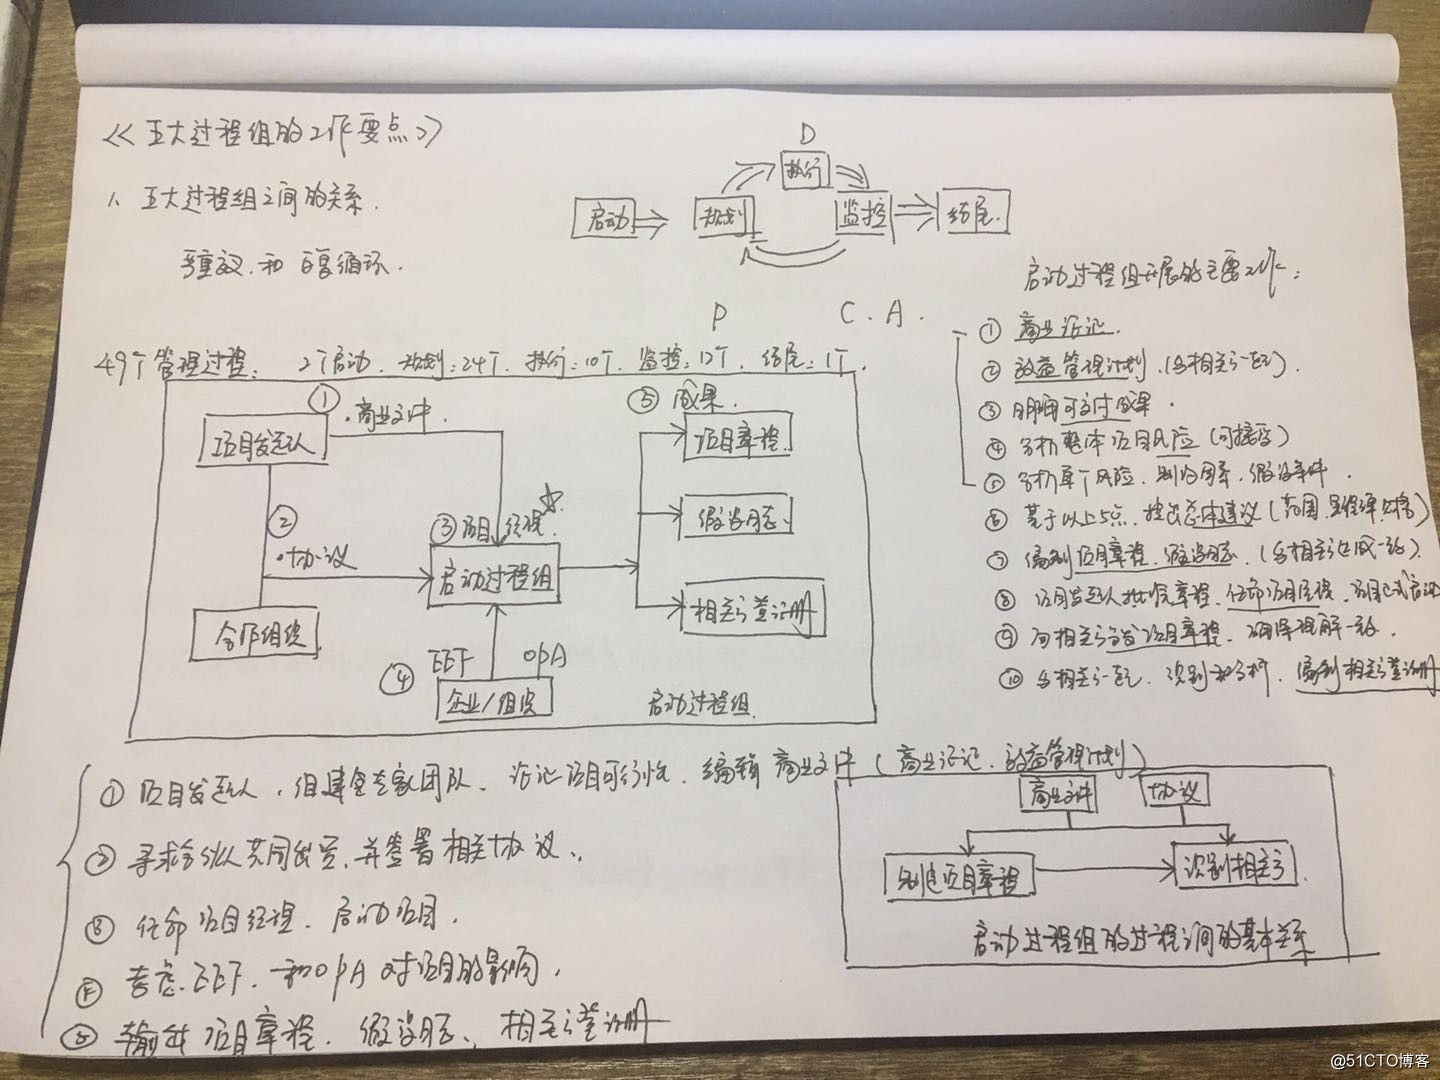 <<五大过程组的工作要点>>
1、五大过程组之间的关系.
重叠和 循环.
启动
规划
D
执行
监控
结尾.
P
C.A.
49个管理过程: 2个启动. 规划:24个. 执行:10个. 监控:12个. 结尾:1个.
①
.商业文件
项目发起人
②
.协议
合作组织
③项目经理.
启动过程组
④
EEF OPA
企业/组织
⑤ 成果.
项目章程.
假设日志、
相关方登记册
启动过程组.
启动过程组开展的主要工作:
① 商业论证.
② 效益管理计划.(与相关方一起).
③ 明确可交付成果.
④ 分析整体项目风险(可接受)
⑤ 分析单个风险、制约因素、假设条件.
⑥ 基于以上5点,提出总体建议(范围、里程碑、价格)
⑦ 编制项目章程、假设日志 (与相关方达成一致).
⑧ 项目发起人批准章程、任命项目经理、项目正式启动
⑨ 向相关方分发项目章程、确保理解一致.
⑩ 与相关方一起、识别和分析、编制相关方登记册
① 项目发起人,组建专家团队、论证项目可行性、编辑 商业文件(商业论证、效益管理计划)
② 寻求合伙人共同出资,并签署相关协议.
③ 任命项目经理、启动项目.
④ 考虑EEF、和OPA对项目的影响.
⑤ 输出项目章程、假设日志、相关方登记册
商业文件
协议
制定项目章程
识别相关方
启动过程组的过程之间的基本关系
@51CTO博客